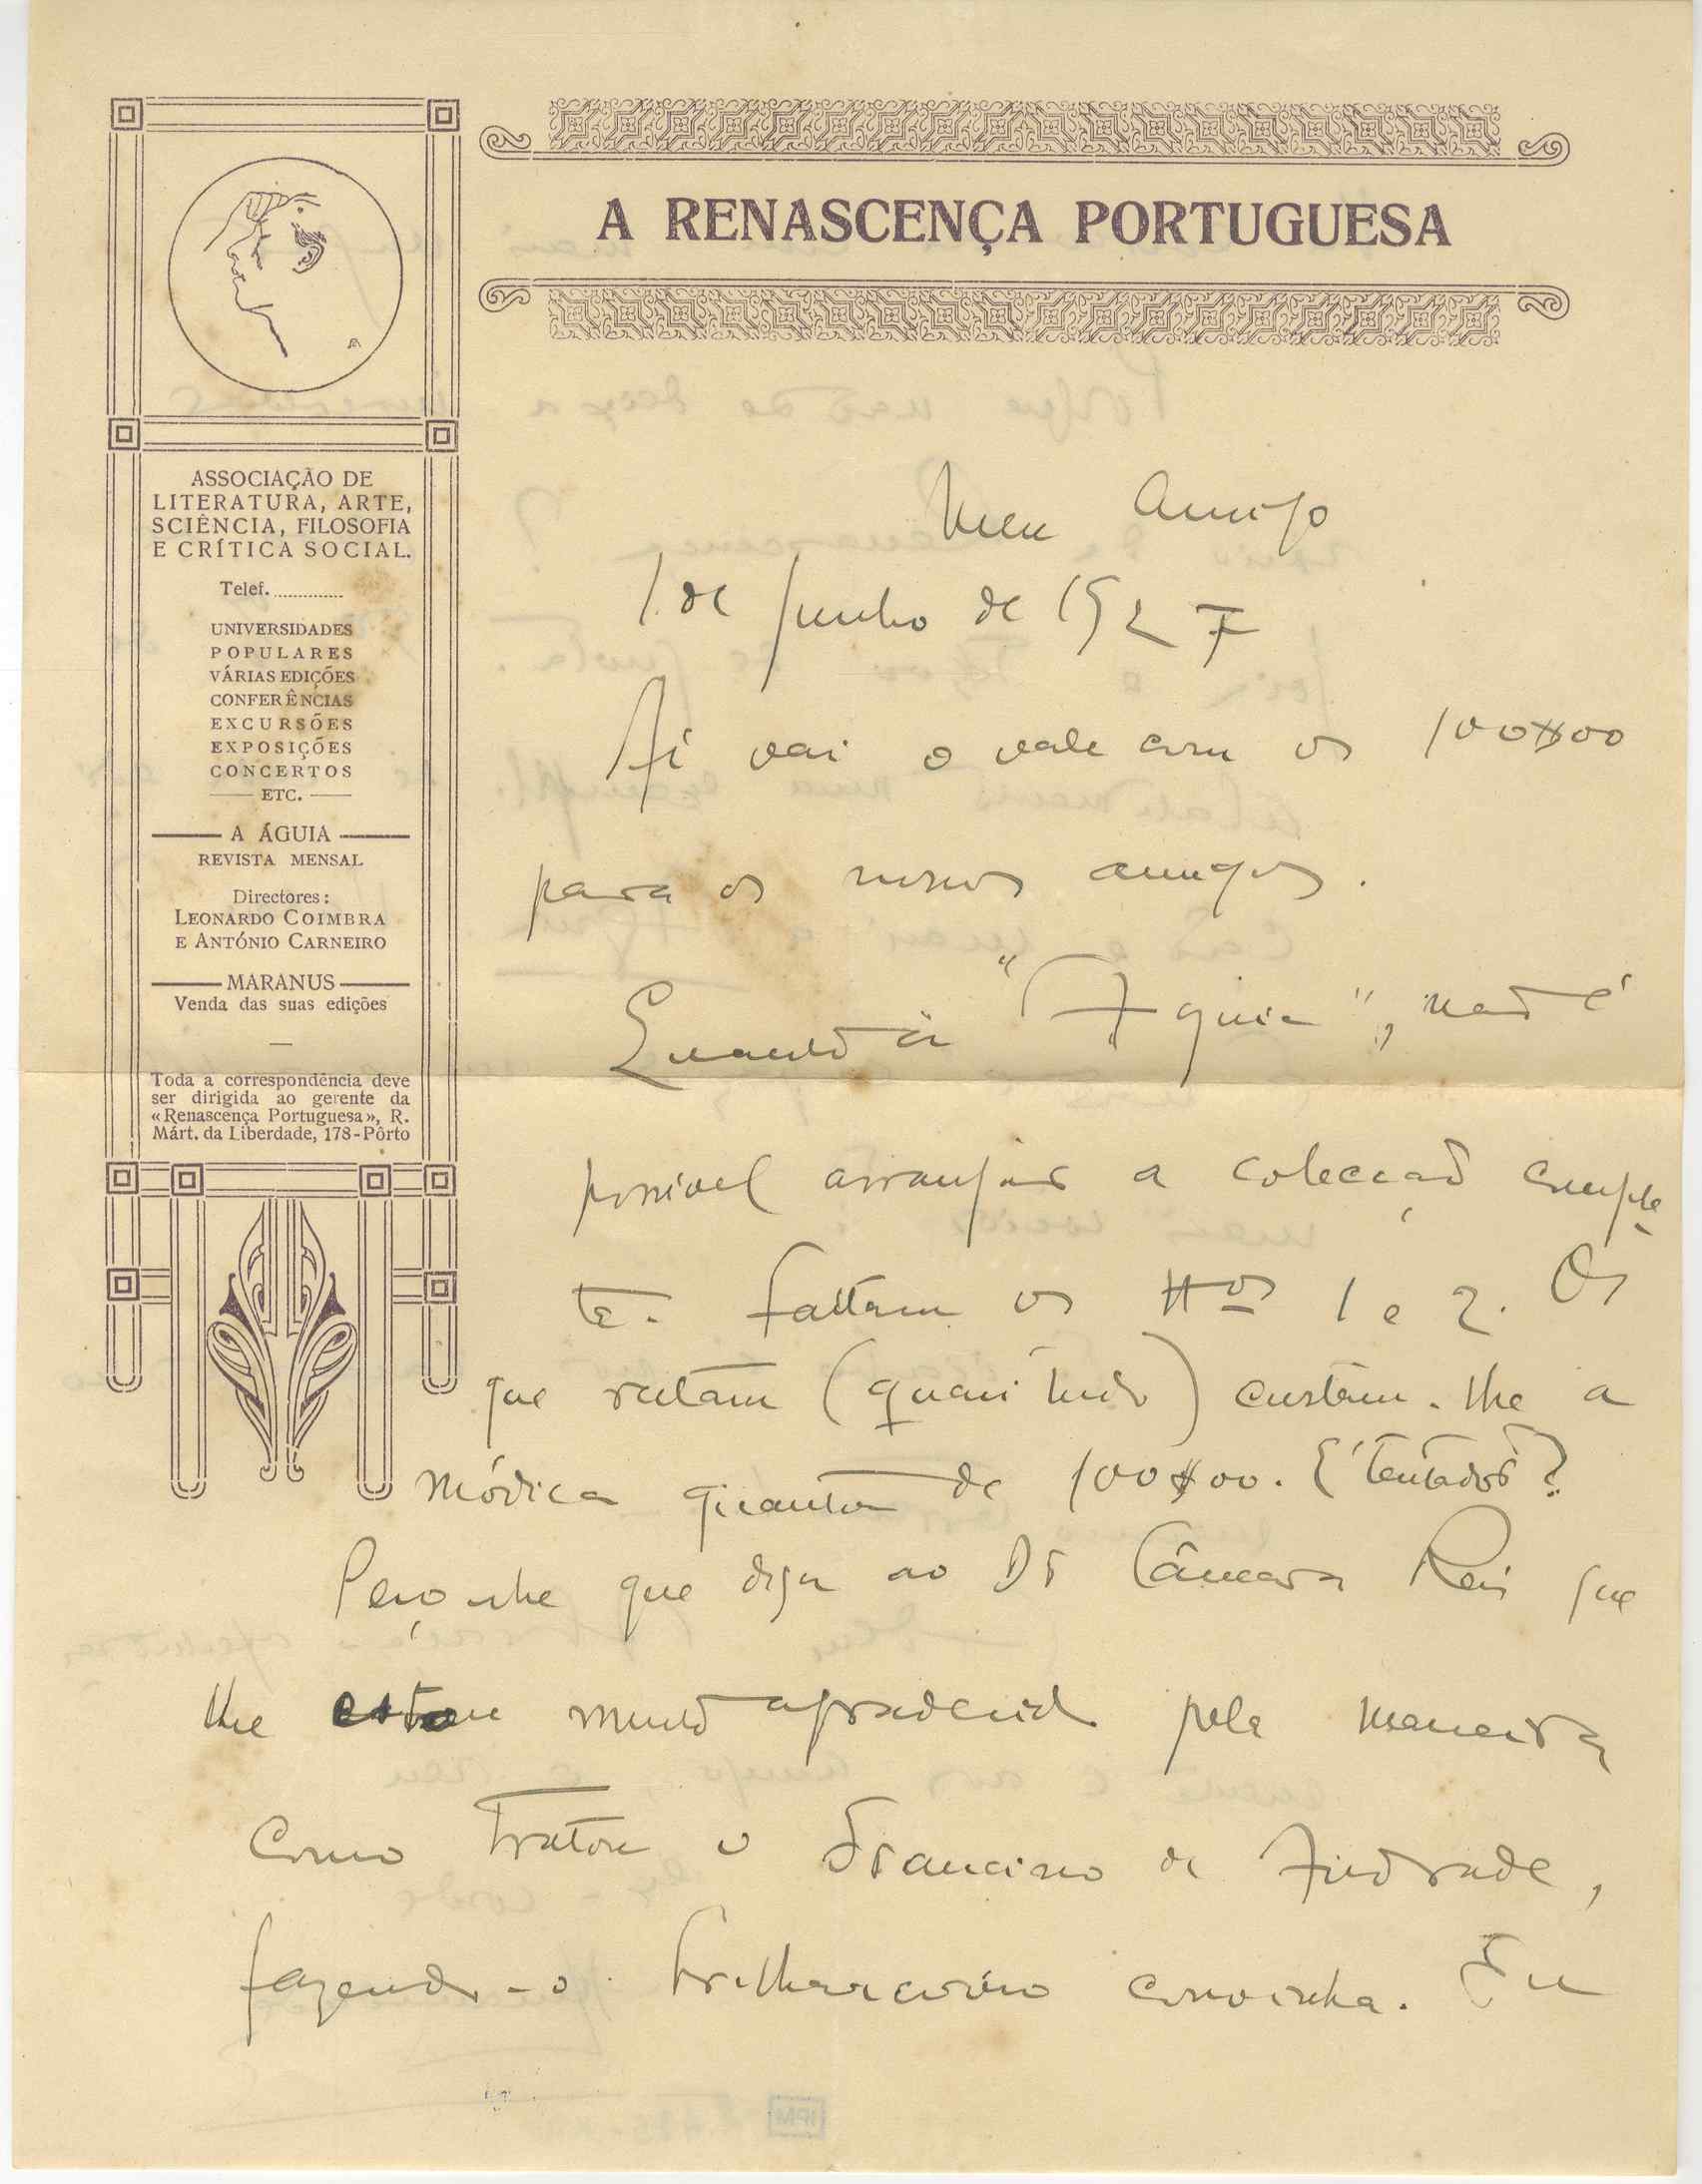 A RENASCENÇA PORTUGUESA
ASSOCIAÇÃO DE
LITERATURA, ARTE,
SCIÊNCIA, FILOSOFIA
E CRÍTICA SOCIAL.
Telef. .............
UNIVERSIDADES
POPULARES
VÁRIAS EDIÇÕES
CONFERÊNCIAS
EXCURSÕES
EXPOSIÇÕES
CONCERTOS
ETC.
A ÁGUIA
REVISTA MENSAL
Directores:
LEONARDO COIMBRA
E ANTÓNIO CARNEIRO
MARANUS
Venda das suas edições
Toda a correspondência deve
ser dirigida ao gerente da
«Renascença Portuguesa», R.
Márt. da Liberdade, 178-Pôrto
Meu Amigo
1 de Junho de 1927
Aí vai o vale com os 100$00
para os nossos amigos.
Quanto à "Aguia", não é
possível arranjar a colecção comple
ta. Faltam os Nos 1 e 2. Os
que restam (quasi tudo) custam-lhe a
módica quantia de 100$00. É tentador?
Peço-lhe que diga ao Dr Câmara Reis que
lhe estou muito agradecido pela maneira
como tratou o Francisco de Andrade,
fazendo-o convinha. Eu